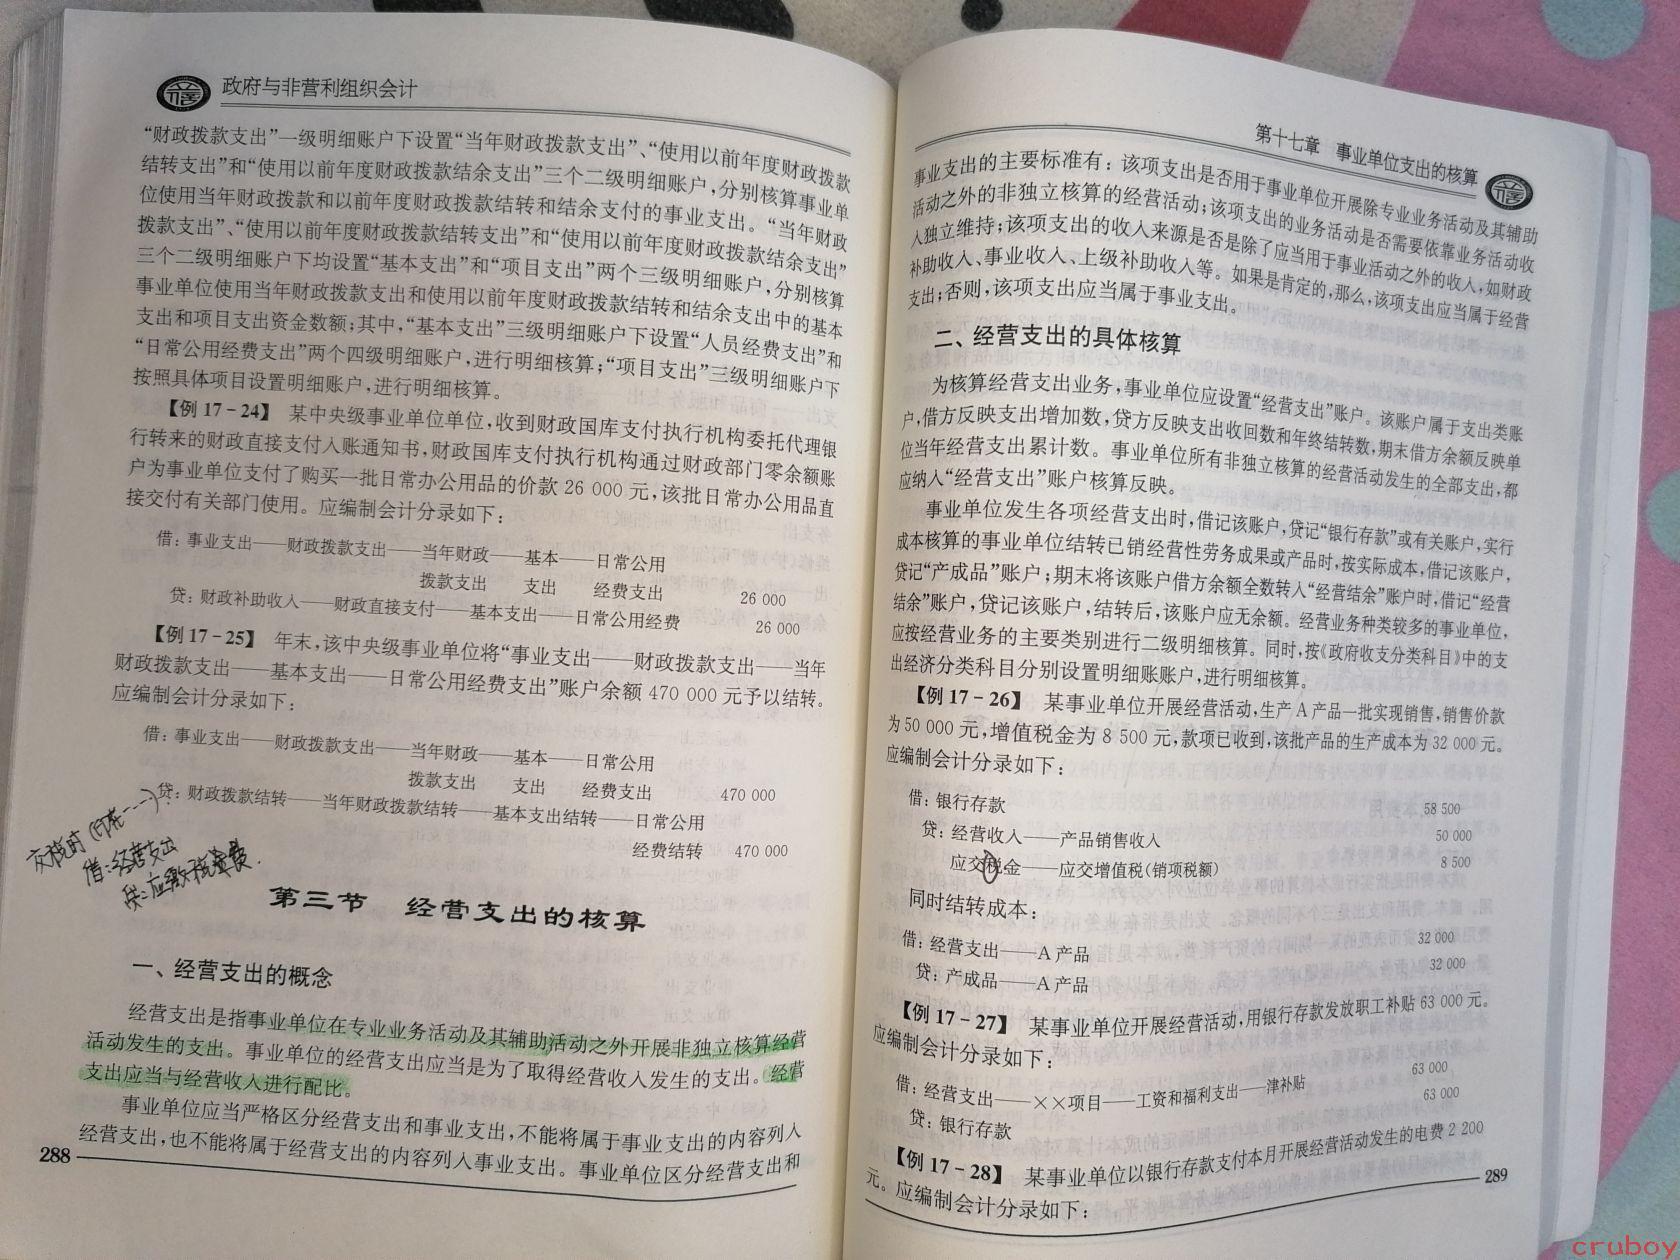 政府与非营利组织会计
“财政拨款支出”一级明细账户下设置“当年财政拨款支出”、“使用以前年度财政拨款
结转支出”和“使用以前年度财政拨款结余支出”三个二级明细账户,分别核算事业单
位使用当年财政拨款和以前年度财政拨款结转和结余支付的事业支出。“当年财政
拨款支出”、“使用以前年度财政拨款结转支出”和“使用以前年度财政拨款结余支出”
三个二级明细账户下均设置“基本支出”和“项目支出”两个三级明细账户,分别核算
事业单位使用当年财政拨款支出和使用以前年度财政拨款结转和结余支出中的基本
支出和项目支出资金数额;其中,“基本支出”三级明细账户下设置“人员经费支出”和
“日常公用经费支出”两个四级明细账户,进行明细核算;“项目支出”三级明细账户下
按照具体项目设置明细账户,进行明细核算。
【例 17-24】 某中央级事业单位单位,收到财政国库支付执行机构委托代理银
行转来的财政直接支付入账通知书,财政国库支付执行机构通过财政部门零余额账
户为事业单位支付了购买一批日常办公用品的价款 26 000 元,该批日常办公用品直
接交付有关部门使用。应编制会计分录如下:
借:事业支出——财政拨款支出——当年财政——基本——日常公用
拨款支出 支出 经费支出 26 000
贷:财政补助收入——财政直接支付——基本支出——日常公用经费 26 000
【例 17-25】 年末,该中央级事业单位将“事业支出——财政拨款支出——当年
财政拨款支出——基本支出——日常公用经费支出”账户余额 470 000 元予以结转。
应编制会计分录如下:
借:事业支出——财政拨款支出——当年财政——基本——日常公用
拨款支出 支出 经费支出 470 000
贷:财政拨款结转——当年财政拨款结转——基本支出结转——日常公用
经费结转 470 000
交税时
借:经营支出
贷:应缴税费.
第三节 经营支出的核算
一、经营支出的概念
经营支出是指事业单位在专业业务活动及其辅助活动之外开展非独立核算经营
活动发生的支出。事业单位的经营支出应当是为了取得经营收入发生的支出。经营
支出应当与经营收入进行配比。
事业单位应当严格区分经营支出和事业支出,不能将属于事业支出的内容列入
经营支出,也不能将属于经营支出的内容列入事业支出。事业单位区分经营支出和
288
第十七章 事业单位支出的核算
事业支出的主要标准有:该项支出是否用于事业单位开展除专业业务活动及其辅助
活动之外的非独立核算的经营活动;该项支出的业务活动是否需要依靠业务活动收
入独立维持;该项支出的收入来源是否是除了应当用于事业活动之外的收入,如财政
补助收入、事业收入、上级补助收入等。如果是肯定的,那么,该项支出应当属于经营
支出;否则,该项支出应当属于事业支出。
二、经营支出的具体核算
为核算经营支出业务,事业单位应设置“经营支出”账户。该账户属于支出类账
户,借方反映支出增加数,贷方反映支出收回数和年终结转数,期末借方余额反映单
位当年经营支出累计数。事业单位所有非独立核算的经营活动发生的全部支出,都
应纳入“经营支出”账户核算反映。
事业单位发生各项经营支出时,借记该账户,贷记“银行存款”或有关账户,实行
成本核算的事业单位结转已销经营性劳务成果或产品时,按实际成本,借记该账户,
贷记“产成品”账户;期末将该账户借方余额全数转入“经营结余”账户时,借记“经营
结余”账户,贷记该账户,结转后,该账户应无余额。经营业务种类较多的事业单位,
应按经营业务的主要类别进行二级明细核算。同时,按《政府收支分类科目》中的支
出经济分类科目分别设置明细账账户,进行明细核算。
【例 17-26】 某事业单位开展经营活动,生产 A 产品一批实现销售,销售价款
为 50 000 元,增值税金为 8 500 元,款项已收到,该批产品的生产成本为 32 000 元。
应编制会计分录如下:
借:银行存款 58 500
贷:经营收入——产品销售收入 50 000
应交税金——应交增值税(销项税额) 8 500
同时结转成本:
借:经营支出——A 产品 32 000
贷:产成品——A 产品 32 000
【例 17-27】 某事业单位开展经营活动,用银行存款发放职工补贴 63 000 元。
应编制会计分录如下:
借:经营支出——××项目——工资和福利支出——津补贴 63 000
贷:银行存款 63 000
【例 17-28】 某事业单位以银行存款支付本月开展经营活动发生的电费 2 200
元。应编制会计分录如下:
289
cruboy